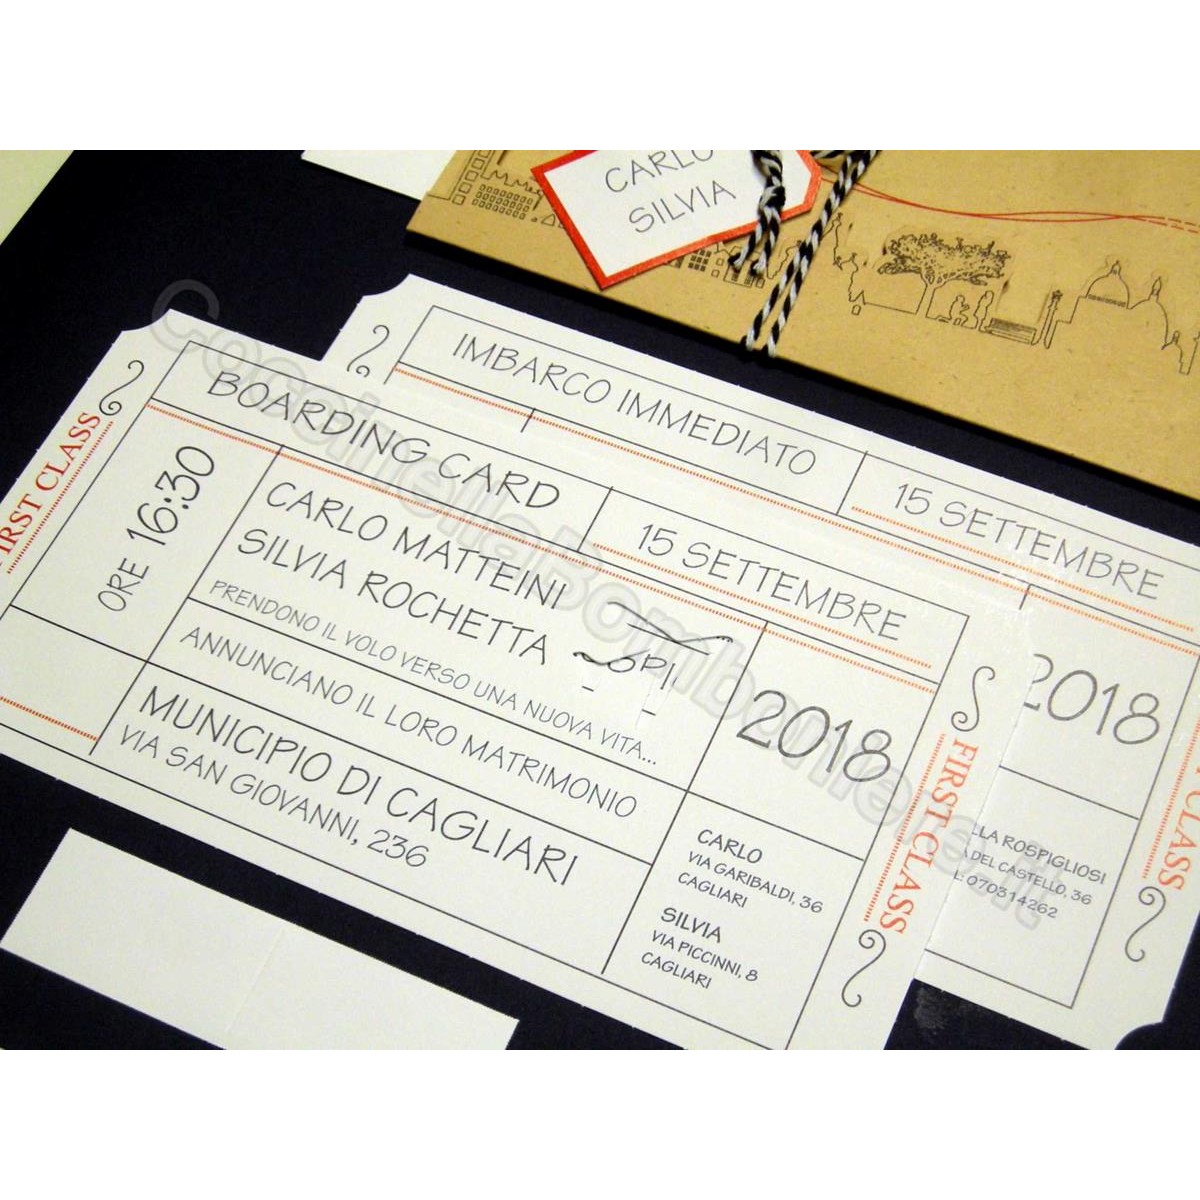 CARLO
SILVIA
IMBARCO IMMEDIATO
15 SETTEMBRE
2018
ROSPIGLIOSI
DEL CASTELLO, 36
070314262
CLASS
FIRST CLASS
BOARDING CARD
15 SETTEMBRE
ORE 16:30
CARLO MATTEINI
SILVIA ROCHETTA
PRENDONO IL VOLO VERSO UNA NUOVA VITA...
ANNUNCIANO IL LORO MATRIMONIO
MUNICIPIO DI CAGLIARI
VIA SAN GIOVANNI, 236
2018
CARLO
VIA GARIBALDI, 36
CAGLIARI
SILVIA
VIA PICCINNI, 8
CAGLIARI
FIRST CLASS
CoccinellaBomboniere.it